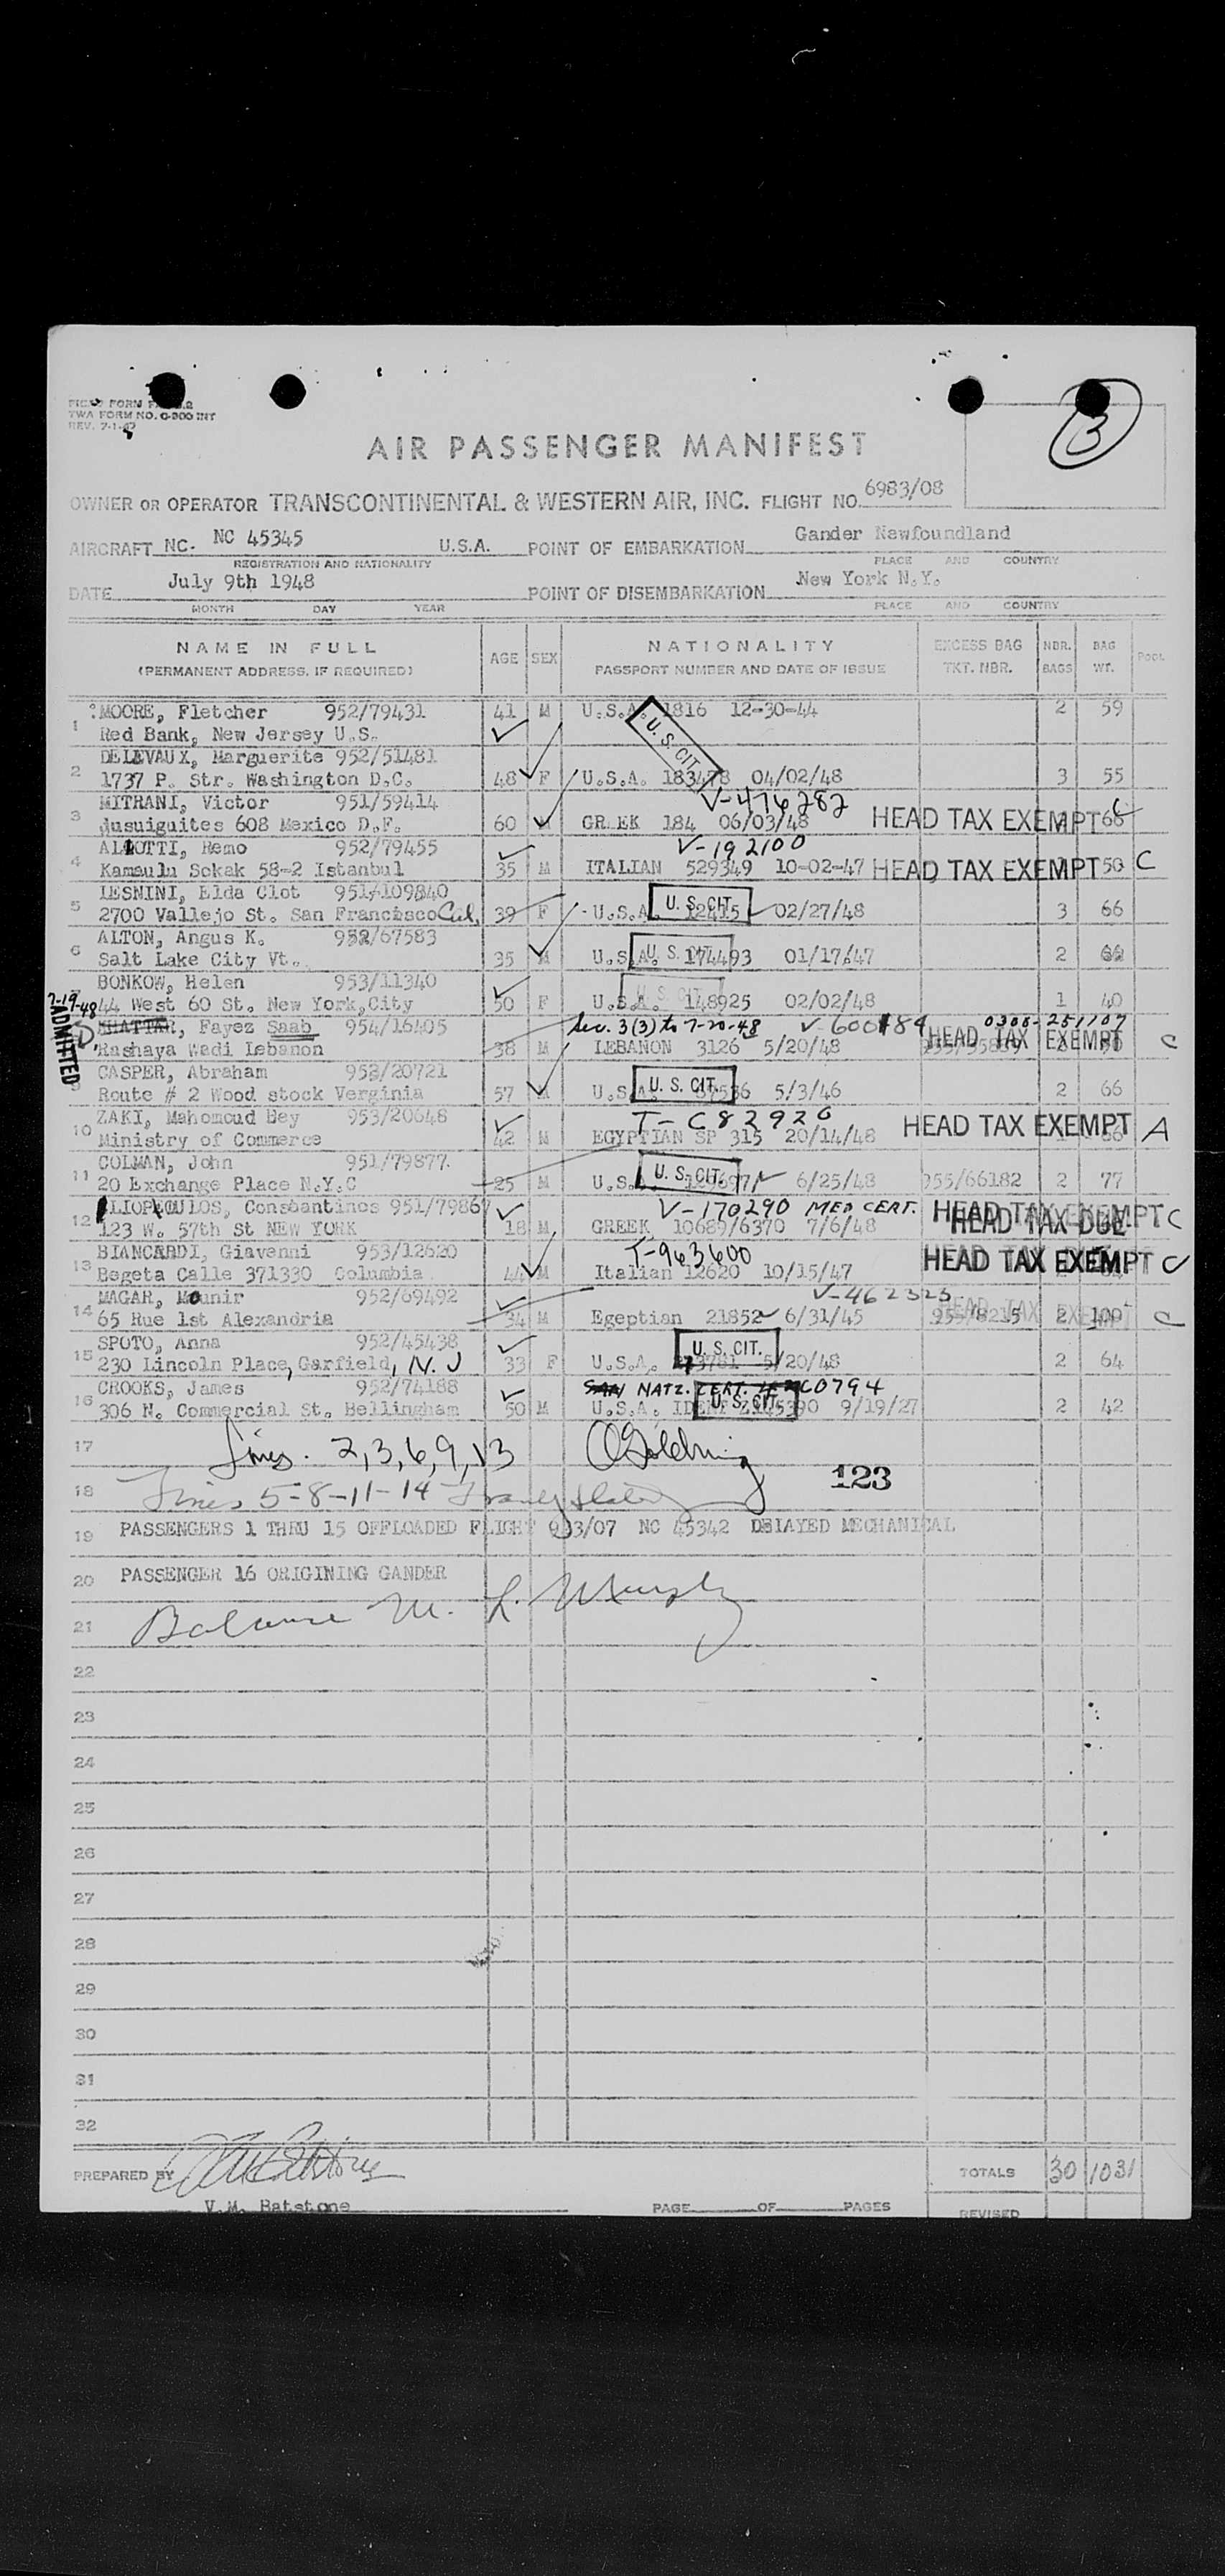 TWA FORM NO. C-300 INT
REV. 7-1-47
3
AIR PASSENGER MANIFEST
OWNER OR OPERATOR TRANSCONTINENTAL & WESTERN AIR, INC. FLIGHT NO. 6983/08
AIRCRAFT NC. NC 45345 U.S.A. POINT OF EMBARKATION Gander Newfoundland
REGISTRATION AND NATIONALITY PLACE AND COUNTRY
DATE July 9th 1948 POINT OF DISEMBARKATION New York N.Y.
MONTH DAY YEAR PLACE AND COUNTRY
NAME IN FULL AGE SEX NATIONALITY EXCESS BAG NBR. BAG POOL
(PERMANENT ADDRESS, IF REQUIRED) PASSPORT NUMBER AND DATE OF ISSUE TKT. NBR. BAGS WT.
1 MOORE, Fletcher 952/79431 41 M U.S.A. 1816 12-30-44 2 59
Red Bank, New Jersey U.S. U. S. CIT.
DELEVAUX, Marguerite 952/51481
2 1737 P. Str. Washington D.C. 48 F U.S.A. 183478 04/02/48 3 55
MITRANI, Victor 951/59414 V-476282
3 Jusuiguites 608 Mexico D.F. 60 M GREEK 184 06/03/48 HEAD TAX EXEMPT 66 C
ALLOTTI, Remo 952/79455 V-192100
4 Kamaulu Sokak 58-2 Istanbul 35 M ITALIAN 529349 10-02-47 HEAD TAX EXEMPT 50 C
LESNINI, Elda Clot 951/109840
5 2700 Vallejo St. San Francisco Cal. 39 F U.S.A. 12415 02/27/48 U. S. CIT. 3 66
ALTON, Angus K. 952/67583
6 Salt Lake City Vt. 35 M U.S.A. 174493 01/17/47 U. S. CIT. 2
BONKOW, Helen 953/11340
44 West 60 St. New York, City 50 F U.S.A. 148925 02/02/48 U. S. CIT. 1 40
7-19-48 ADMITTED
KHATTAR, Fayez Saab 954/16405 Sec. 3(3) to 7-20-48 V-600184 0308-251707
Rashaya Wadi Lebanon 38 M LEBANON 3126 5/20/48 HEAD TAX EXEMPT C
CASPER, Abraham 953/20721
9 Route # 2 Wood stock Verginia 57 M U.S.A. 37536 5/3/46 U. S. CIT. 2 66
ZAKI, Mahomoud Bey 953/20648 T-C82920
10 Ministry of Commerce 42 M EGYPTIAN SP 315 20/14/48 HEAD TAX EXEMPT A
COLMAN, John 951/79877
11 20 Exchange Place N.Y.C 25 M U.S.A. 6/25/48 U. S. CIT. 955/66182 2 77
ELIOPOULOS, Constantinos 951/79867 V-170290 MED CERT. HEAD TAX EXEMPT C
12 123 W. 57th St NEW YORK 18 M GREEK 10689/6370 7/6/48 HEAD TAX DUE
BIANCARDI, Giavanni 953/12620 T-963600
13 Bogota Calle 371330 Columbia 44 M Italian 12620 10/15/47 HEAD TAX EXEMPT C
MAGAR, Mounir 952/69492 V-462323
14 65 Rue 1st Alexandria 34 M Egeptian 21852 6/31/45 955/8215 HEAD TAX EXEMPT 2 100 C
SPOTO, Anna 952/45438
15 230 Lincoln Place, Garfield, N.J 33 F U.S.A. 5/20/48 U. S. CIT. 2 64
CROOKS, James 952/74188 NATZ. CERT.
16 306 N. Commercial St. Bellingham 50 M U.S.A. IDENT 9/19/27 U. S. CIT. 2 42
17 Lines. 2,3,6,9,13
18 Lines 5-8-11-14 123
19 PASSENGERS 1 THRU 15 OFFLOADED FLIGHT 963/07 NC 45342 DELAYED MECHANICAL
20 PASSENGER 16 ORIGINING GANDER
21 Balance M. L. Murphy
22
23
24
25
26
27
28
29
30
31
32
PREPARED BY TOTALS 30 1031
V.M. Batstone PAGE OF PAGES REVISED